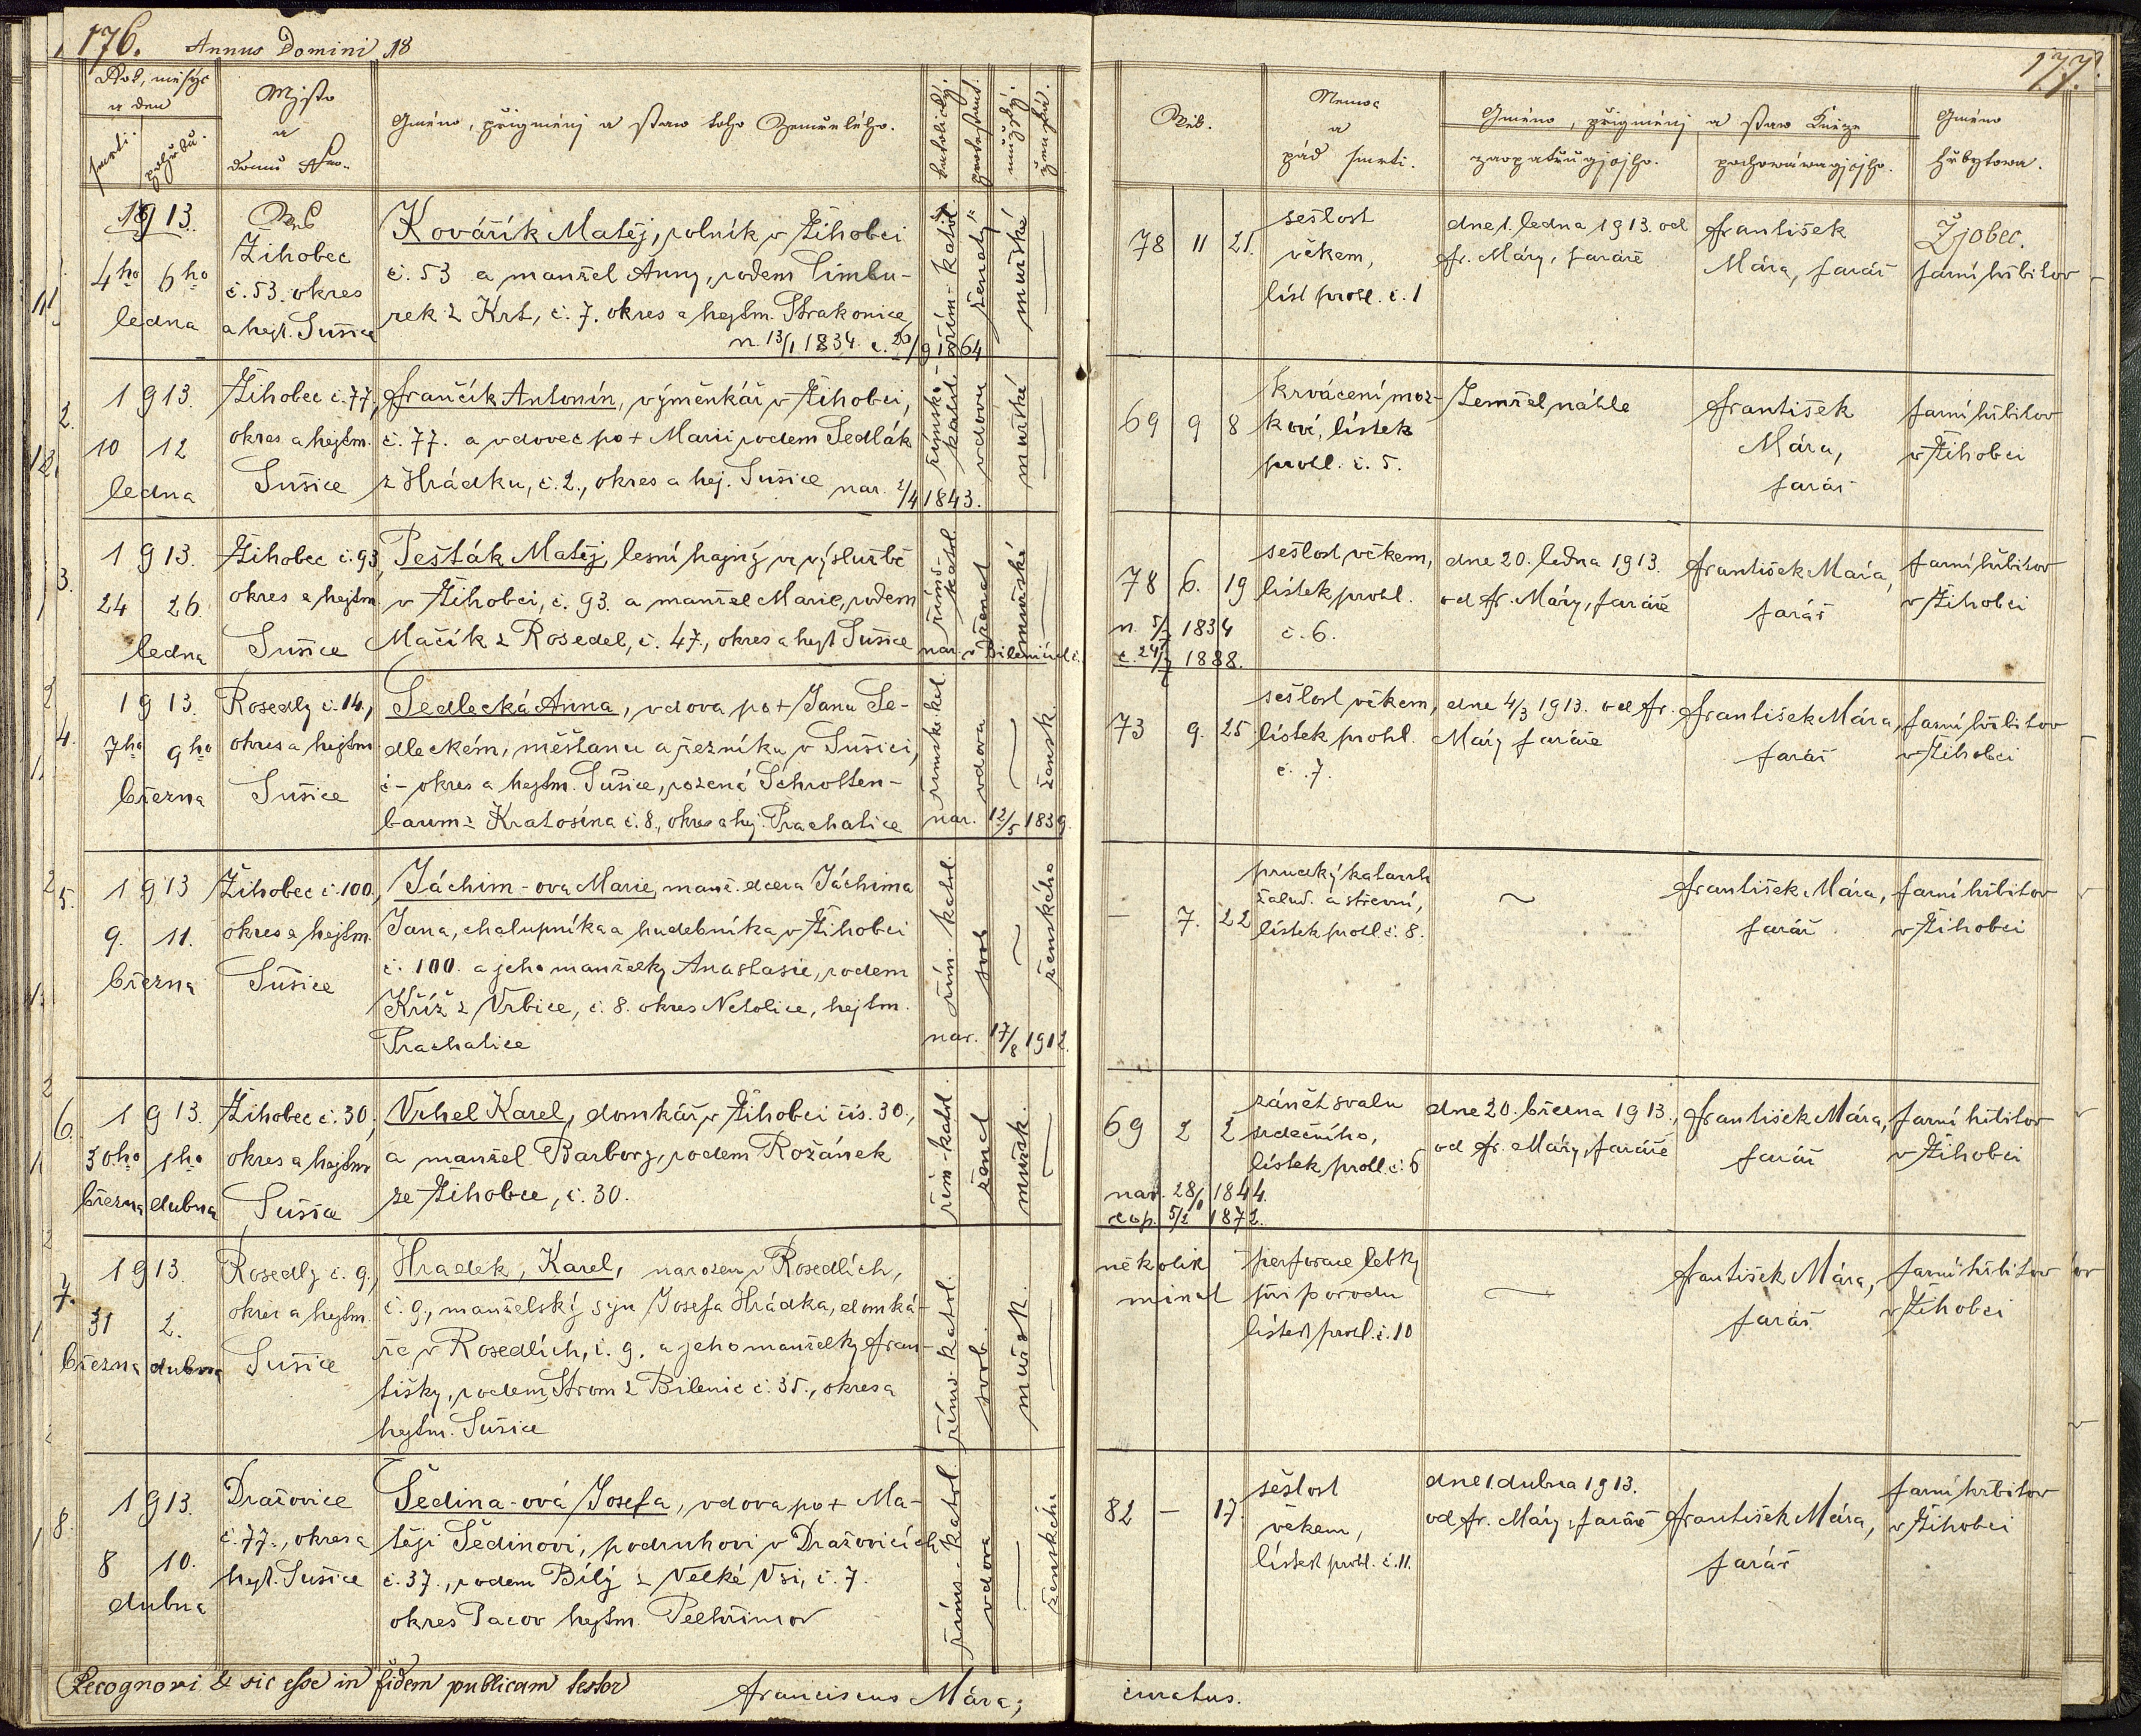 176. Annus Domini 18
177.
Rok, měsýc
a den
smrti.
pohřbu.
Mjsto
a
domu Nro.
Gméno, přigmenj a staw toho Zemřelého.
katolický.
protestant.
mužský.
ženský.
Wěk.
Nemoc
a
pád smrti.
Gméno, přigmenj a staw Kněze
zaopatřugjcjho.
pochowáwagjcjho.
Gméno
hřbytowa.
1913.
4ho 6ho
ledna
Žihobec
č. 53. okres
a hejt. Sušice
Kovářík Matěj, rolník v Žihobci
č. 53 a manžel Anny, rodem Cimbu-
rek z Krt, č. 7. okres a hejtm. Strakonice
n. 13/1 1834. c. 26/9 1864
řím-katol.
ženatý
mužské
78 11 21.
sešlost
věkem,
líst prohl. č. 1
dne 1. ledna 1913. od
Fr. Máry, faráře
František
Mára, farář
Žjobec.
farní hřbitov
2.
1913.
10 12
ledna
Žihobec č. 77.,
okres a hejtm.
Sušice
Frančík Antonín, výměnkář v Žihobci,
č. 77. a vdovec po + Marii rodem Sedlák
z Hrádku, č. 2., okres a hej. Sušice nar. 2/4 1843.
římsko-
katol.
vdovec
mužské
69 9 8
krvácení moz-
kové, lístek
prohl. č. 5.
Zemřel náhle
František
Mára,
farář
farní hřbitov
v Žihobci
3.
1913.
24 26
ledna
Žihobec č. 93,
okres a hejtm.
Sušice
Pešták Matěj, lesní hajný ve výslužbě
v Žihobci, č. 93. a manžel Marie, rodem
Mačík z Rosedel, č. 47., okres a hejt Sušice
říms-
katol.
ženat
mužské
nar. v Bilenicích
78 6. 19
n. 5/7 1834
c. 24/7 1888.
sešlost věkem,
lístek prohl.
č. 6.
dne 20. ledna 1913.
od Fr. Máry, faráře
František Mára,
farář
farní hřbitov
v Žihobci
4.
1913.
7ho 9ho
března
Rosedly č. 14.,
okres a hejtm.
Sušice
Sedlecká Anna, vdova po + Janu Se-
dleckém, měšťanu a řezníku v Sušici,
č - okres a hejtm. Sušice, rozená Schrotten-
baum z Kratošína č. 8., okres a hej. Prachatice
římsko-kat.
vdova
žensk.
nar. 12/5 1839.
73 9. 25.
sešlost věkem,
lístek prohl.
č. 7.
dne 4/3 1913. od Fr.
Máry faráře
František Mára,
farář
farní hřbitov
v Žihobci
5.
1913
9. 11.
března
Žihobec č. 100.,
okres a hejtm.
Sušice
Jáchim-ova Marie, manž. dcera Jáchima
Jana, chalupníka a hudebníka v Žihobci
č. 100. a jeho manželky Anastasie, rodem
Kříž z Vrbice, č. 8. okres Netolice, hejtm.
Prachatice
řím. katol.
svob
ženského
nar. 17/8 1912.
— 7. 22
prudký katarrh
žalud. a střevní,
lístek prohl. č. 8.
František Mára,
farář
farní hřbitov
v Žihobci
6.
1913.
30ho 1ho
března dubna
Žihobec č. 30.,
okres a hejtm
Sušice
Vrhel Karel, domkář v Žihobci čís. 30.,
a manžel Barbory, rodem Rožánek
ze Žihobce, č. 30.
řím-katol.
ženat
mužsk.
69 2 2
nar. 28/1 1844.
cop. 5/2 1872.
zánět svalu
srdečního,
lístek prohl. č. 5
dne 20. března 1913.,
od Fr. Máry, faráře
František Mára,
farář
farní hřbitov
v Žihobci
7.
1913.
31 2.
března dubna
Rosedly č. 9.,
okres a hejtm.
Sušice
Hradek, Karel, narozen v Rosedlích,
č. 9., manželský syn Josefa Hrádka, domká-
ře v Rosedlích, č. 9. a jeho manželky Fran-
tišky, rodem Strom z Bilenic č. 35., okres a
hejtm. Sušice
římo-katol.
svob.
mužsk.
několik
minut
perforace lebky
při porodu
lístek prohl. č. 10
František Mára,
farář
farní hřbitov
v Žihobci
8.
1913.
8 10.
dubna
Dražovice
č. 77., okres a
hejt. Sušice
Šedina-ová Josefa, vdova po + Ma-
těji Šedinovi, podruhovi v Dražovicích
č. 37., rodem Bílý z Velké Vsi, č. 7.
okres Pacov hejtm. Pelhřimov
říms-katol.
vdova
ženského
82 — 17.
sešlost
věkem,
lístek prohl. č. 11.
dne 1. dubna 1913.
od Fr. Máry, faráře
František Mára,
farář
farní hřbitov
v Žihobci
Recognovi & sic esse in fidem publicam testor
Franciscus Mára,
curatus.